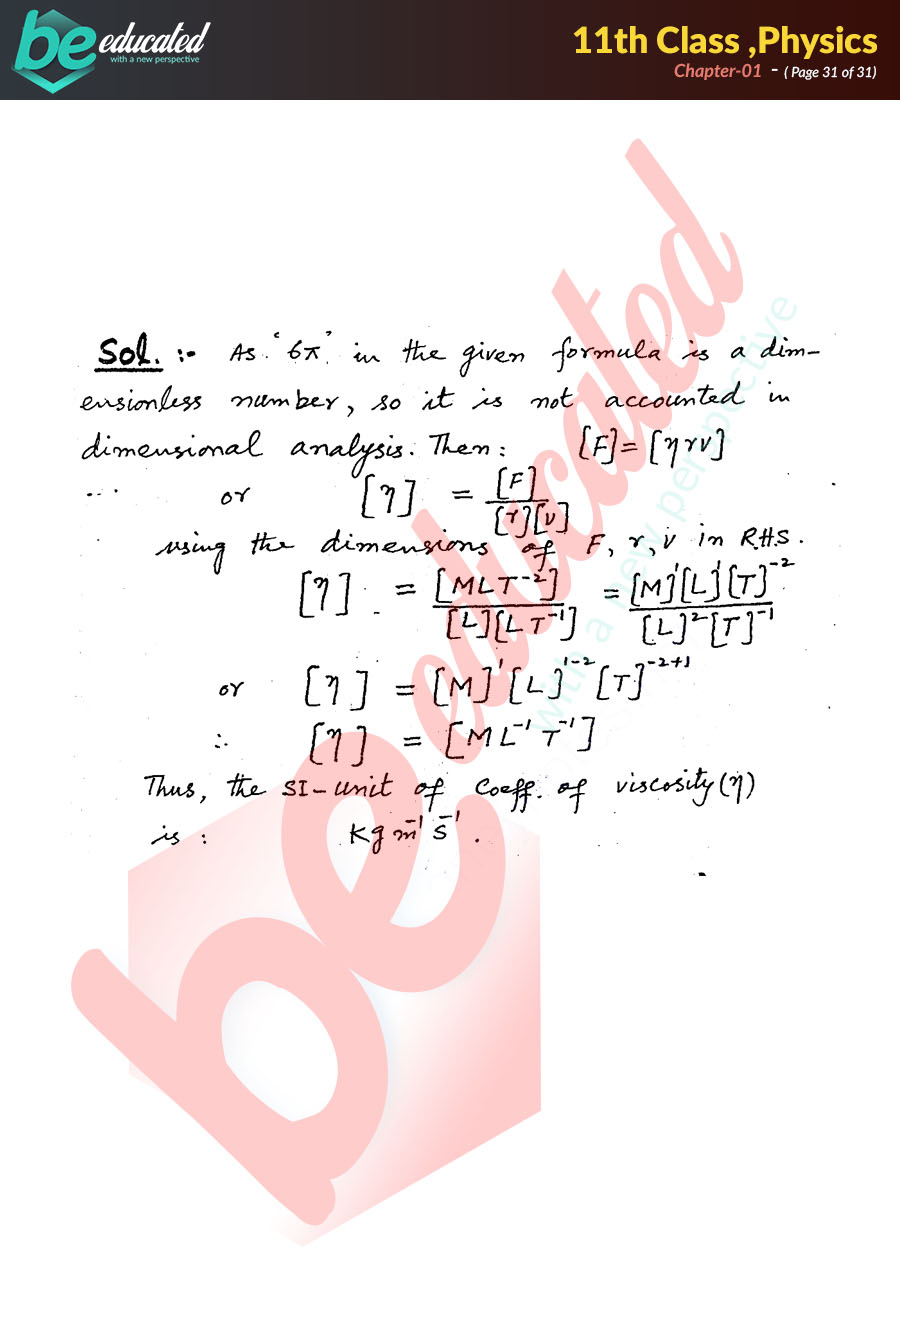 be educated
with a new perspective
11th Class ,Physics
Chapter-01 - ( Page 31 of 31)
Sol. :- As '6π' in the given formula is a dim-
ensionless number, so it is not accounted in
dimensional analysis. Then: [F] = [η r v]
or [η] = [F] / [r][v]
using the dimensions of F, r, v in R.H.S.
[η] = [MLT⁻²] / [L][LT⁻¹] = [M]¹[L]¹[T]⁻² / [L]²[T]⁻¹
or [η] = [M]¹ [L]¹⁻² [T]⁻²⁺¹
∴ [η] = [M L⁻¹ T⁻¹]
Thus, the SI-unit of Coeff. of viscosity (η)
is : Kg m⁻¹ s⁻¹ .
be educated
with a new perspective